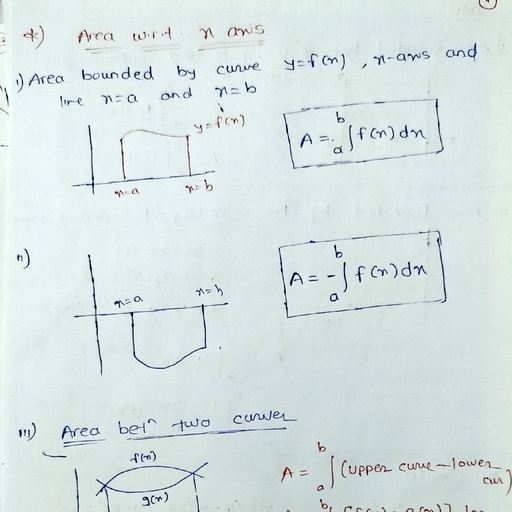 *) Area w.r.t. x axis
i) Area bounded by curve y=f(x), x-axis and
line x=a and x=b
y=f(x)
A = a∫b f(x)dx
x=a x=b
ii)
A = - a∫b f(x)dx
x=a x=b
iii) Area betⁿ two curves
f(x)
g(x)
A = a∫b (upper curve-lower
cur)